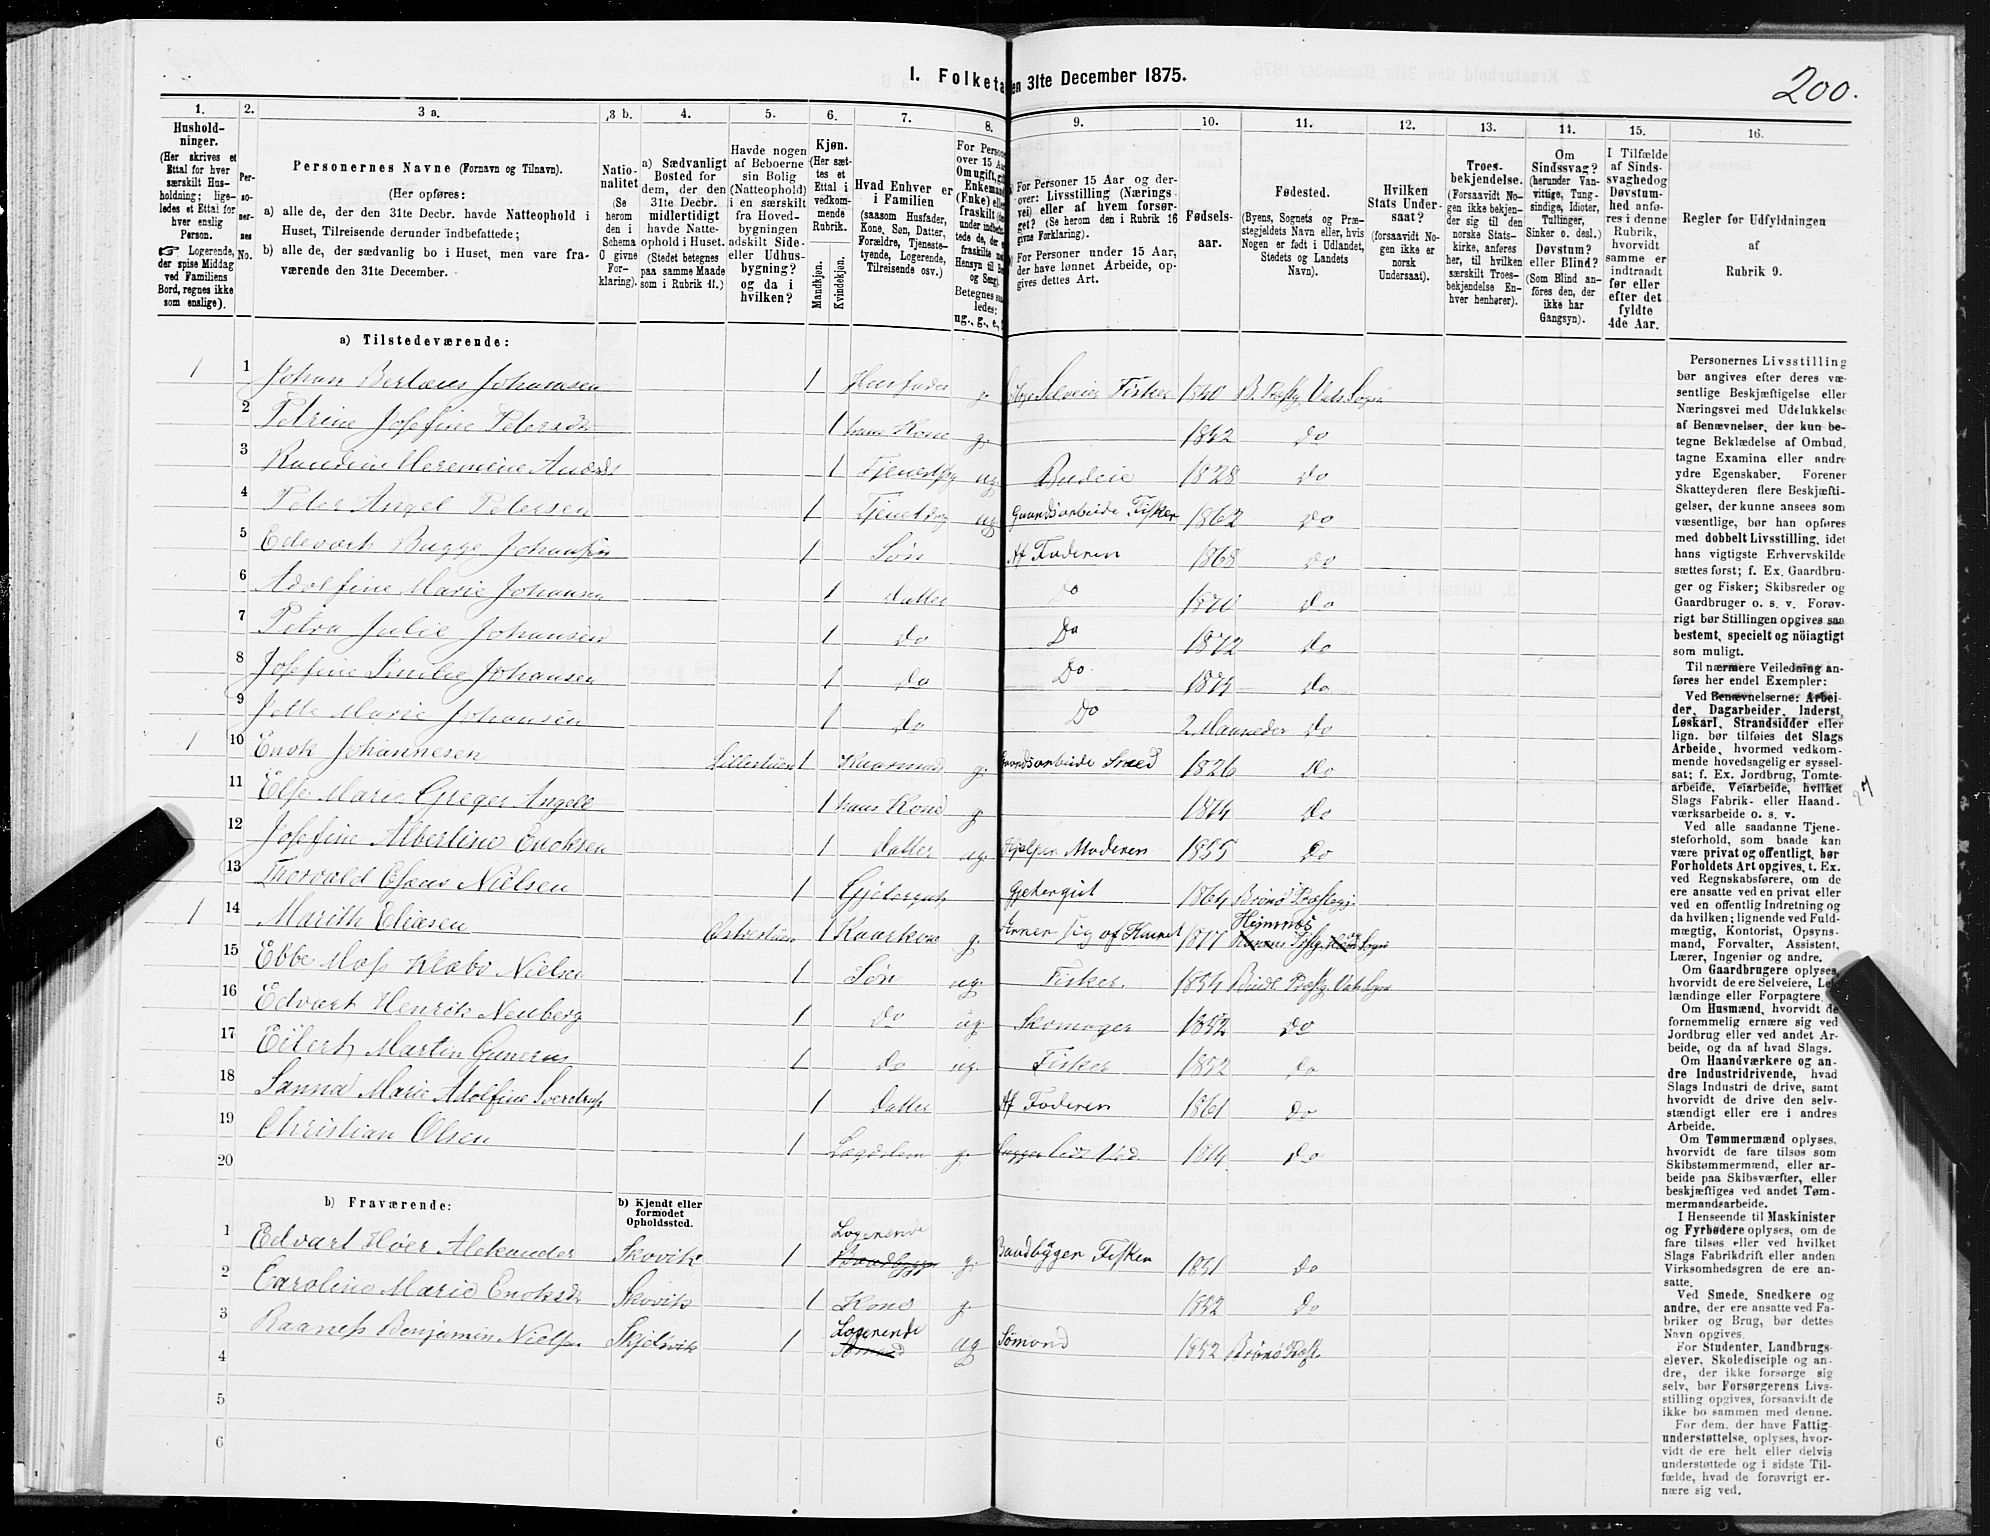 I. Folketa en 31te December 1875.
200.
1. 2. 3 a. 3 b. 4. 5. 6. 7. 8. 9. 10. 11. 12. 13. 14. 15. 16.
Hushold-
ninger.
(Her skrives et
Ettal for hver
særskilt Hus-
holdning; lige-
ledes et Ettal for
hver enslig
Person.
Logerende,
der spise Middag
ved Familiens
Bord, regnes ikke
som enslige).
Per-
so-
ner-
nes
No.
Personernes Navne (Fornavn og Tilnavn).
(Her opføres:
a) alle de, der den 31te Decbr. havde Natteophold i
Huset, Tilreisende derunder indbefattede;
b) alle de, der sædvanlig bo i Huset, men vare fra-
værende den 31te December.
Natio-
nalitet
(Se
herom
den i
Schema
O givne
For-
klaring).
a) Sædvanligt
Bosted for
dem, der den
31te Decbr.
midlertidigt
havde Natte-
ophold i Huset.
(Stedet betegnes
paa samme Maade
som i Rubrik 11.)
Havde nogen
af Beboerne
sin Bolig
(Natteophold)
i en særskilt
fra Hoved-
bygningen
adskilt Side-
eller Udhus-
bygning?
og da i
hvilken?
Kjøn.
(Her sæt-
tes et
Ettal i
vedkom-
mende
Rubrik.
Mandkjøn.
Kvindekjøn.
Hvad Enhver er
i Familien
(saasom Husfader,
Kone, Søn, Datter,
Forældre, Tjeneste-
tyende, Logerende,
Tilreisende osv.)
For Persone
over 15 Aa
Om ugift, gi
Enkemand
(Enke) elle
fraskilt
Betegnes saa
ledes:
ug., g., e.,
For Personer 15 Aar og der-
over: Livsstilling (Nærings-
vei) eller af hvem forsør-
get? (Se herom den i Rubrik 16
givne Forklaring).
For Personer under 15 Aar,
der have lønnet Arbeide, op-
gives dettes Art.
Fødsels-
aar.
Fødested.
(Byens, Sognets og Præ-
stegjeldets Navn eller, hvis
Nogen er født i Udlandet,
Stedets og Landets
Navn).
Hvilken
Stats Under-
saat?
(forsaavidt No-
gen ikke er
norsk
Undersaat).
Troes-
bekjendelse.
(Forsaavidt No-
gen ikke bekjen-
der sig til den
norske Stats-
kirke, anføres
her, til hvilken
særskilt Troes-
bekjendelse En-
hver henhører).
Om
Sindssvag?
(herunder Van-
vittige, Tung-
sindige, Idioter,
Tullinger,
Sinker o. desl.)
Døvstum?
eller Blind?
(Som Blind an-
føres den, der
ikke har
Gangsyn).
I Tilfælde
af Sinds-
svaghed og
Døvstum-
hed anfø-
res i denne
Rubrik,
hvorvidt
samme er
indtraadt
før eller
efter det
fyldte
4de Aar.
Regler før Udfyldningen
af
Rubrik 9.
a) Tilstedeværende:
1 1 Johan Berlaus Johansen 1 Husfader g. Selveier Fisker 1840 B. Præstg Vats Sogn
2 Petrine Josefine Petersdr 1 hans Kone g. 1842 Do
3 1 ug. Budeie 1828 Do
4 Peter Angel Petersen 1 ug. Gaardsarbeide Fisker 1862 Do
5 Edevart Bugge Johansen 1 Søn Af Faderen 1868 Do
6 Adolfine Marie Johansen 1 Datter Do 1870 Do
7 Petra Julie Johansen 1 Do Do 1872 Do
8 Josefine Emilie Johansen 1 Do Do 1874 Do
9 Jette Marie Johansen 1 Do Do 2 Maaneder Do
1 10 Enok Johannesen 1 Kaarmand g. Gaardsarbeide Smed 1826 Do
11 Else Marie Greger Angell 1 hans Kone g. 1814 Do
12 Josefine Albertine Enoksen 1 Datter ug. Hjelper Moderen 1855 Do
13 Thorvald Nielsen 1 Gjetergut Gjetergut 1864 Brønø Præsteg.
1 14 Marith Eliasen Østerstuen 1 Kaarkone g. Hemnæs
15 Ebbe Klæbo Nielsen 1 Søn ug. Fisker 1854 Bindl. Præstg. Vats Sogn
16 Edvart Henrik Neuberg 1 Do ug. Skomager 1852 Do
17 Eilert Martin Gunerius 1 Do ug. Fisker 1852 Do
18 Sanna Marie Adolfine Sverdrup 1 Datter Af Faderen 1861 Do
19 Christian Olsen 1 Lægdslem g. 1814 Do
20
b) Fraværende:
b) Kjendt eller
formodet
Opholdssted.
1 Edvart Høer Aleksander Skovik 1 Logerende g. Baadbygger Fisker 1851 Do
2 Caroline Marie Enoksdr Skovik 1 Kone g. 1852 Do
3 Raanes Benjamin Nielsen Skjelsvik 1 Logerende ug Sømand 1852 Brønø Præst.
4
5
6
Personernes Livsstilling
bør angives efter deres væ-
sentlige Beskjæftigelse eller
Næringsvei med Udelukkelse
af Benævnelser, der kun be-
tegne Beklædelse af Ombud,
tagne Examina eller andre
ydre Egenskaber. Forener
Skatteyderen flere Beskjæfti-
gelser, der kunne ansees som
væsentlige, bør han opføres
med dobbelt Livsstilling, idet
hans vigtigste Erhvervskilde
sættes først; f. Ex. Gaardbru-
ger og Fisker; Skibsreder og
Gaardbruger o. s. v. Forøv-
rigt bør Stillingen opgives saa
bestemt, specielt og nöiagtigt
som muligt.
Til nærmere Veiledning an-
føres her endel Exempler:
Ved Benævnelserne: Arbei-
der, Dagarbeider, Inderst,
Løskarl, Strandsidder eller
lign. bør tilføies det Slags
Arbeide, hvormed vedkom-
mende hovedsagelig er syssel-
sat; f. Ex. Jordbrug, Tomte-
arbeide, Veiarbeide, hvilket
Slags Fabrik- eller Haand-
værksarbeide o. s. v.
Ved alle saadanne Tjene-
steforhold, som baade kan
være privat og offentligt, bør
Forholdets Art opgives, t. Ex.
ved Regnskabsførere, om de
ere ansatte ved en privat eller
ved en offentlig Indretning og
da hvilken; lignende ved Fuld-
mægtig, Kontorist, Opsyns-
mand, Forvalter, Assistent,
Lærer, Ingeniør og andre.
Om Gaardbrugere oplyses,
hvorvidt de ere Selveiere, Lei-
lændinge eller Forpagtere.
Om Husmænd, hvorvidt de
fornemmelig ernære sig ved
Jordbrug eller ved andet Ar-
beide, og da af hvad Slags.
Om Haandværkere og an-
dre Industridrivende, hvad
Slags Industri de drive, samt
hvorvidt de drive den selv-
stændigt eller ere i andres
Arbeide.
Om Tømmermænd oplyses,
hvorvidt de fare tilsøs som
Skibstømmermænd, eller ar-
beide paa Skibsværfter, eller
beskjæftiges ved andet Tøm-
mermandsarbeide.
I Henseende til Maskinister
og Fyrbødere oplyses, om de
fare tilsøs eller ved hvilket
Slags Fabrikdrift eller anden
Virksomhedsgren de ere an-
satte.
Ved Smede, Snedkere og
andre, der ere ansatte ved Fa-
briker og Brug, bør dettes
Navn opgives.
For Studenter, Landbrugs-
elever, Skoledisciple og an-
dre, der ikke forsørge sig
selv, bør Forsørgerens Livs-
stilling opgives, forsaavidt de
ikke bo sammen med denne.
For dem, der have Fattig-
understøttelse, oplyses, hvor-
vidt de ere helt eller delvis
understøttede og i sidste Til-
fælde, hvad de forøvrigt er-
nære sig ved.